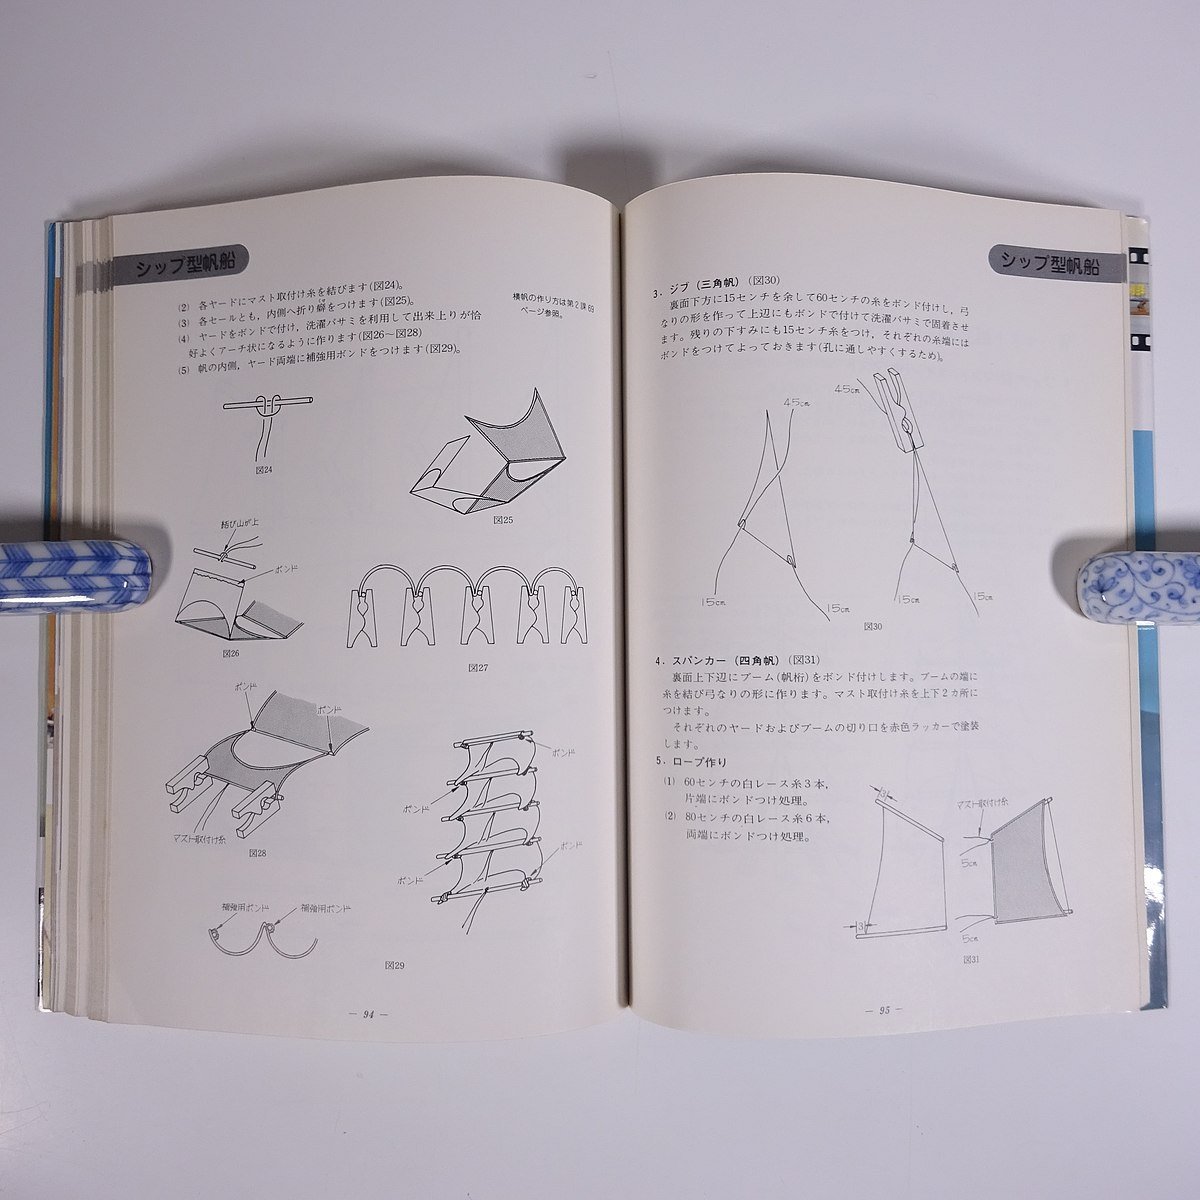 シップ型帆船
(2) 各ヤードにマスト取付け糸を結びます(図24)。
(3) 各セールとも，内側へ折り癖をつけます(図25)。
(4) ヤードをボンドで付け，洗濯バサミを利用して出来上りが恰
好よくアーチ状になるように作ります(図26〜図28)
(5) 帆の内側，ヤード両端に補強用ボンドをつけます(図29)。
横帆の作り方は第2課69
ページ参照。
図24
図25
結び山が上
ボンド
図26
図27
ボンド
ボンド
マスト取付け糸
図28
ボンド
ボンド
ボンド
ボンド
補強用ボンド
補強用ボンド
図29
— 94 —
シップ型帆船
3．ジブ（三角帆）（図30）
裏面下方に15センチを余して60センチの糸をボンド付けし，弓
なりの形を作って上辺にもボンドで付けて洗濯バサミで固着させ
ます。残りの下すみにも15センチ糸をつけ，それぞれの糸端には
ボンドをつけてよっておきます(孔に通しやすくするため)。
45cm
45cm
15cm
15cm
15cm
15cm
図30
4．スパンカー（四角帆）（図31）
裏面上下辺にブーム(帆桁)をボンド付けします。ブームの端に
糸を結び弓なりの形に作ります。マスト取付け糸を上下2カ所に
つけます。
それぞれのヤードおよびブームの切り口を赤色ラッカーで塗装
します。
5．ロープ作り
(1) 60センチの白レース糸3本，
片端にボンドつけ処理。
(2) 80センチの白レース糸6本，
両端にボンドつけ処理。
3
マスト取付け糸
5cm
3
5cm
図31
— 95 —